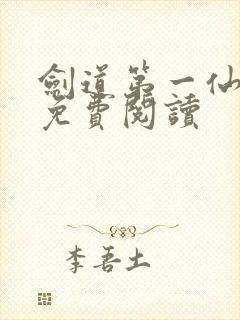 劍道第一仙
免費閱讀
李吾土